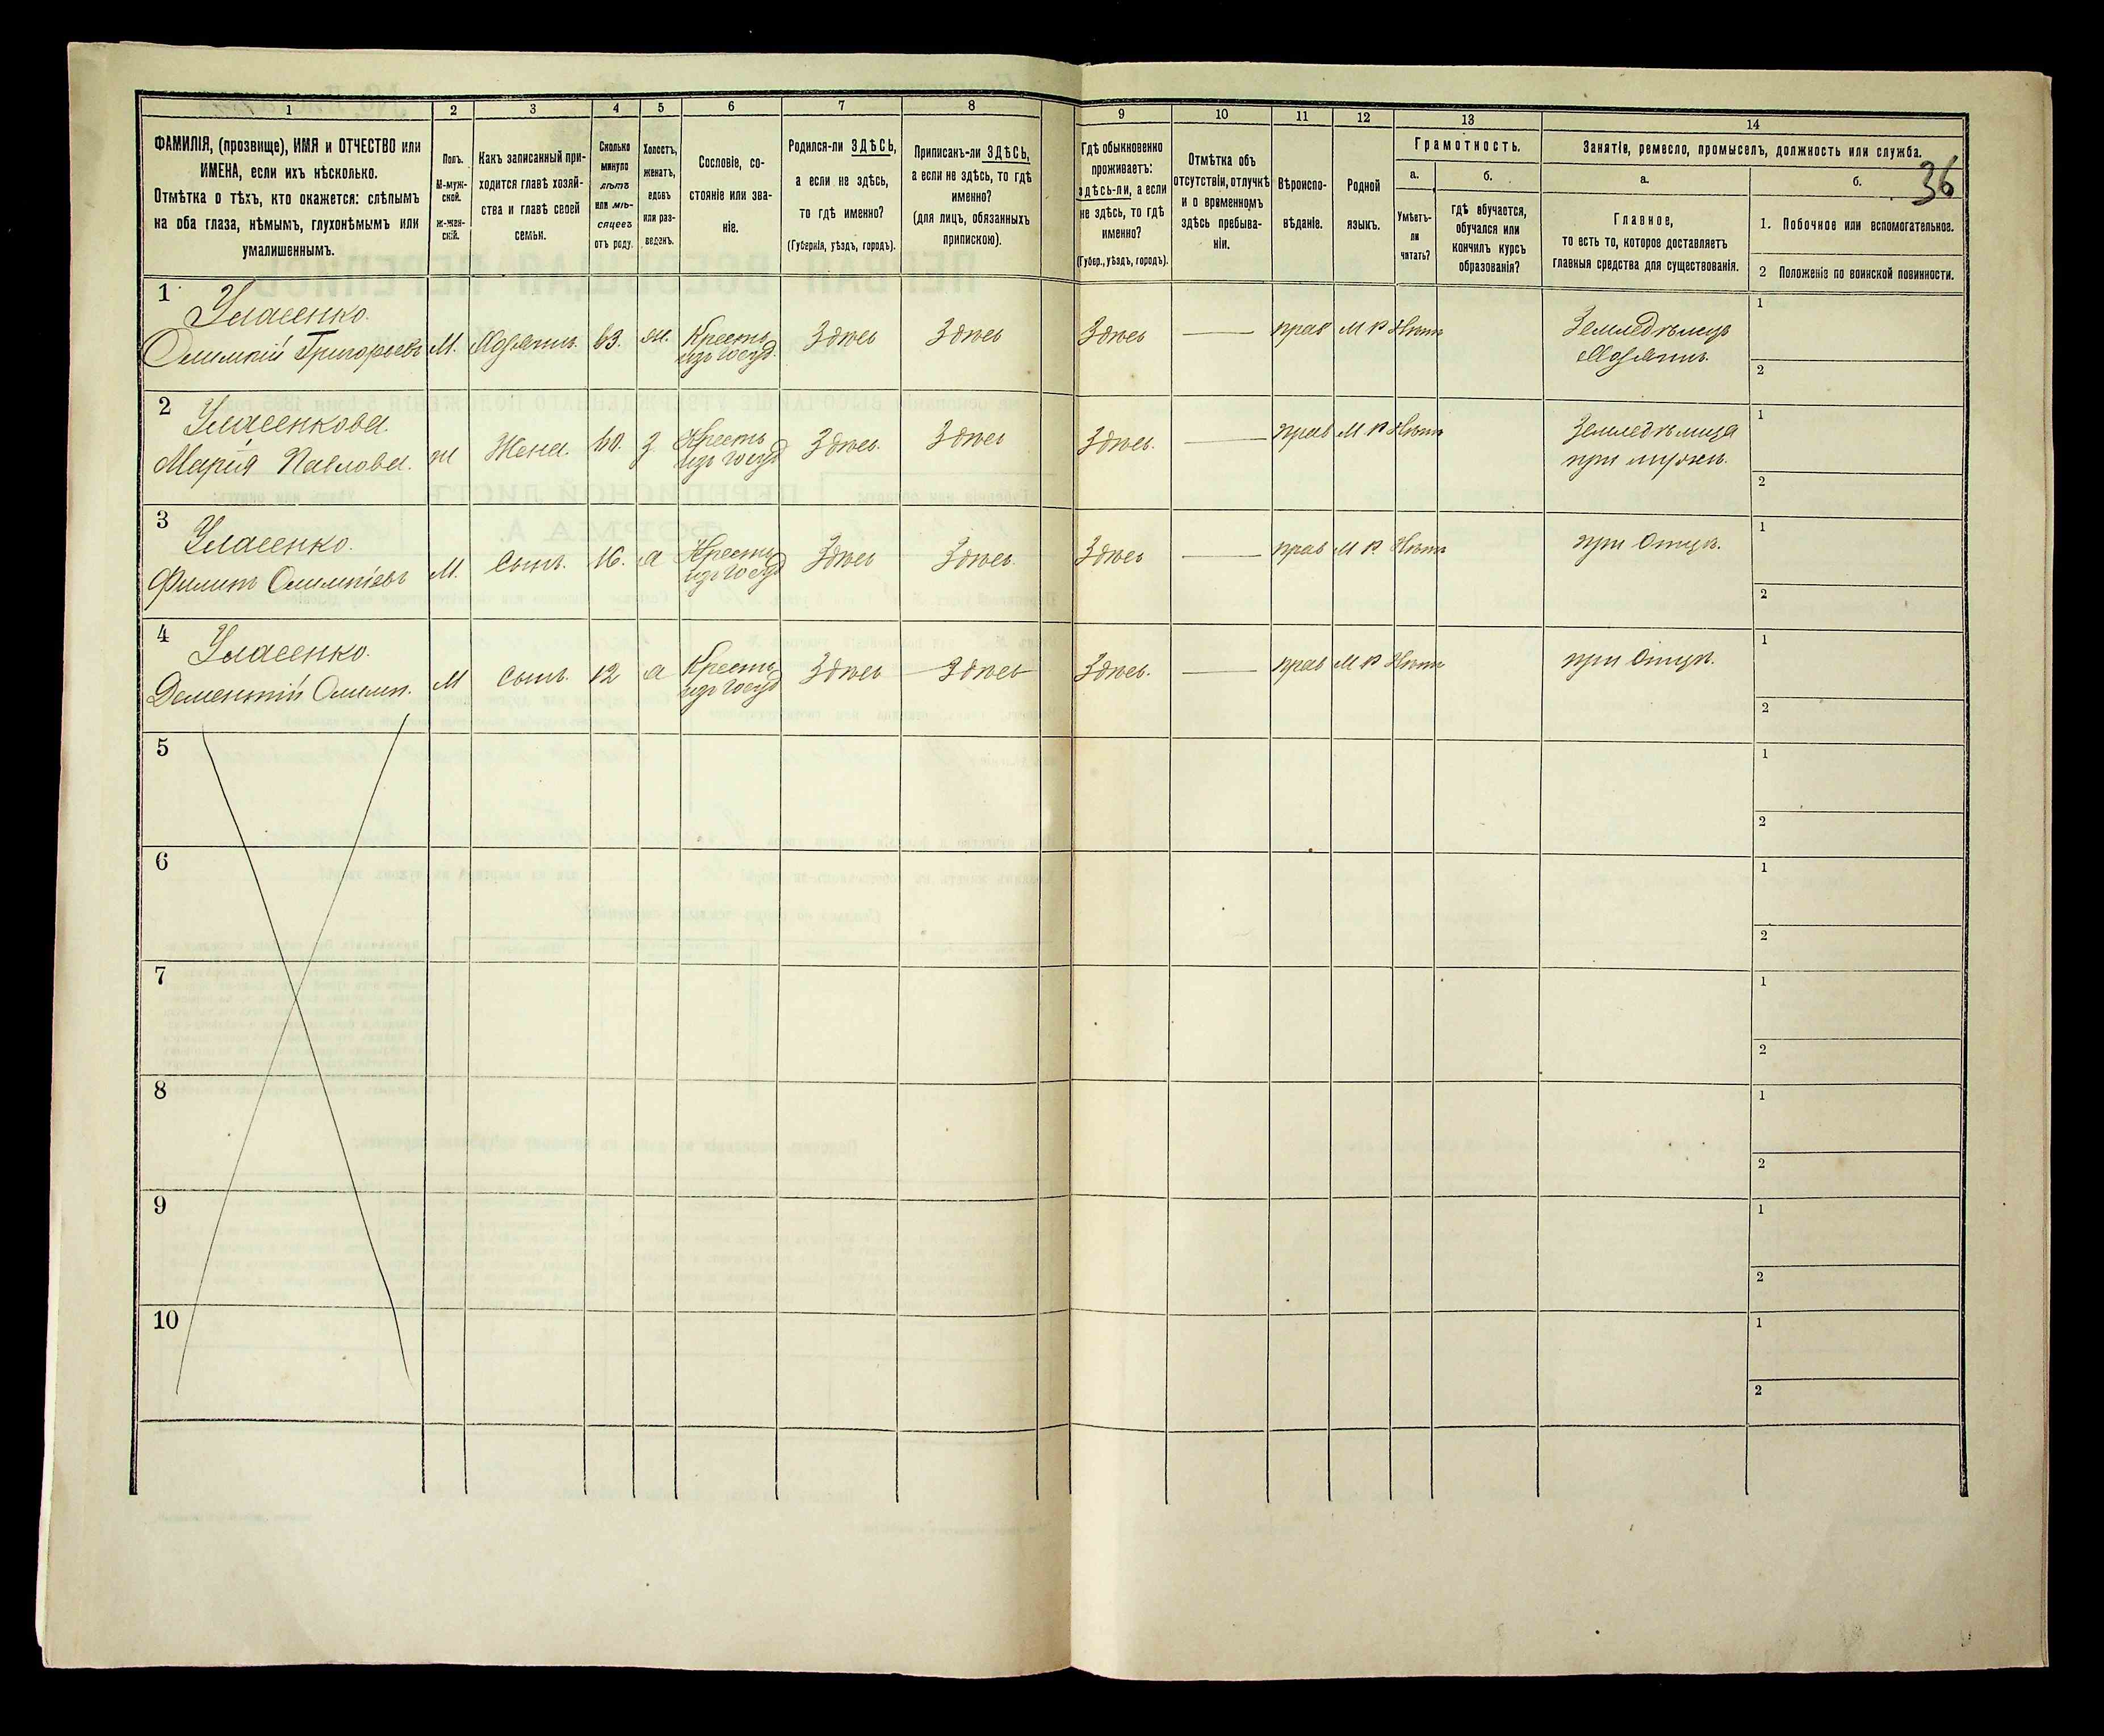 36
1
2
3
4
5
6
7
8
9
10
11
12
13
14
ФАМИЛІЯ, (прозвище), ИМЯ и ОТЧЕСТВО или
ИМЕНА, если ихъ нѣсколько.
Отмѣтка о тѣхъ, кто окажется: слѣпымъ
на оба глаза, нѣмымъ, глухонѣмымъ или
умалишеннымъ.
Полъ.
М-муж-
ской.
Ж-жен-
скій.
Какъ записанный при-
ходится главѣ хозяй-
ства и главѣ своей
семьи.
Сколько
минуло
лѣтъ
или мѣ-
сяцевъ
отъ роду.
Холостъ,
женатъ,
вдовъ
или раз-
веденъ.
Сословіе, со-
стояніе или зва-
ніе.
Родился-ли ЗДѢСЬ,
а если не здѣсь,
то гдѣ именно?
(Губернія, уѣздъ, городъ).
Приписанъ-ли ЗДѢСЬ,
а если не здѣсь, то гдѣ
именно?
(для лицъ, обязанныхъ
припискою).
Гдѣ обыкновенно
проживаетъ:
здѣсь-ли, а если
не здѣсь, то гдѣ
именно?
(Губер., уѣздъ, городъ).
Отмѣтка объ
отсутствіи, отлучкѣ
и о временномъ
здѣсь пребыва-
ніи.
Вѣроиспо-
вѣданіе.
Родной
языкъ.
Грамотность.
а.
Умѣетъ-
ли
читать?
б.
гдѣ обучается,
обучался или
кончилъ курсъ
образованія?
Занятіе, ремесло, промыселъ, должность или служба.
а.
Главное,
то есть то, которое доставляетъ
главныя средства для существованія.
б.
1. Побочное или вспомогательное.
2 Положеніе по воинской повинности.
1
Уласенко.
Олимпій Григорьевъ М. Хозяинъ. 63. ж. Крестъ изъ госуд. Здѣсь Здѣсь Здѣсь — прав М Р Нѣтъ Земледѣлецъ
Хозяинъ.
1
2
2
Уласенкова.
Марія Павлова. ж Жена. 60. з Крестъ изъ госуд Здѣсь. Здѣсь Здѣсь. — прав М Р Нѣтъ Земледѣлица
при мужѣ.
1
2
3
Уласенко.
Филипъ Олимпіевъ М. Сынъ. 16. х Крестъ изъ госуд Здѣсь Здѣсь. Здѣсь — прав М Р. Нѣтъ при Отцѣ.
1
2
4
Уласенко.
Дементій Олимп. М Сынъ. 12 х Крестъ изъ госуд Здѣсь Здѣсь Здѣсь. — прав М Р Нѣтъ при Отцѣ.
1
2
5
1
2
6
1
2
7
1
2
8
1
2
9
1
2
10
1
2